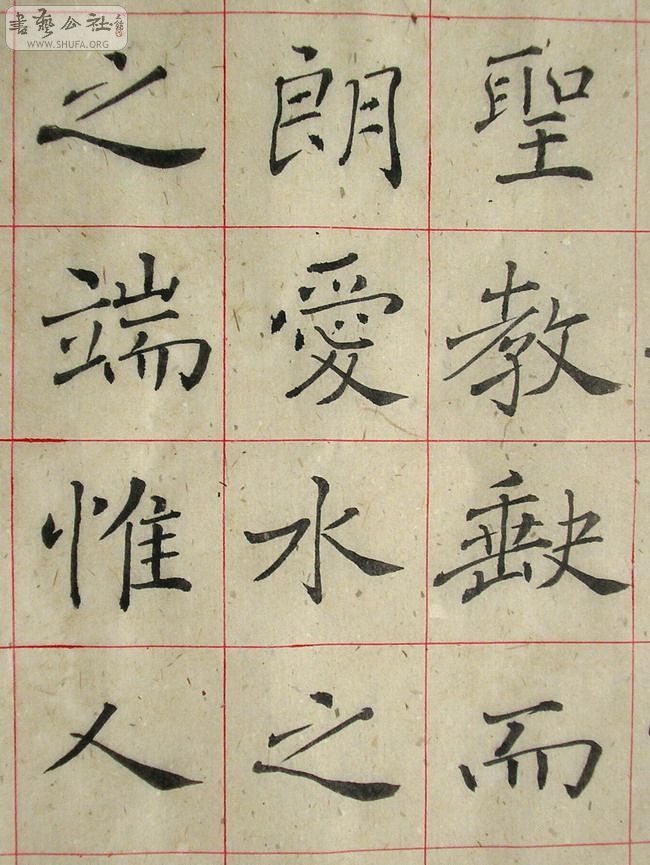 書藝公社
WWW.SHUFA.ORG
聖教𡙇而
朗愛水之
之端惟人